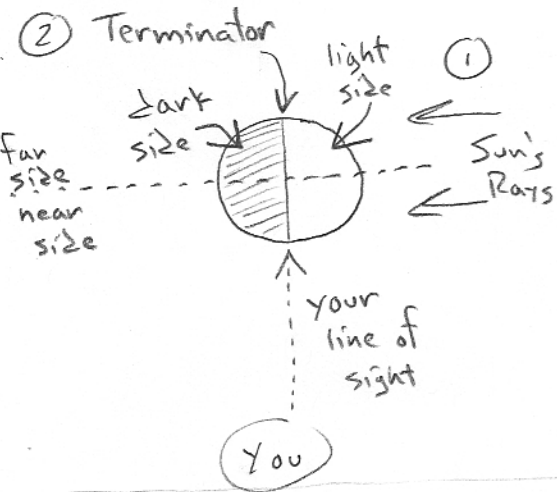 ② Terminator
light
side
①
dark
side
far
side
near
side
Sun's
Rays
your
line of
sight
You